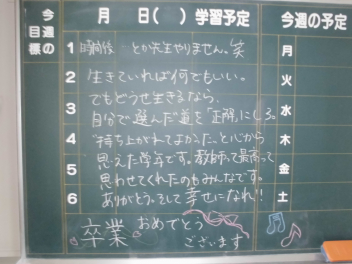 今週の目標
月 日( ) 学習予定
今週の予定
1 時間後 とか先生やりません。笑
2 生きていれば何でもいい。
でもどうせ生きるなら、
3 自分で選んだ道を「正解」にしろ。
4 "持ち上がれてよかった"と心から
思えた学年です。教師って最高って
5 思わせてくれたのもみんなです。
6 ありがとう。そして幸せになれ!!
卒業 おめでとう
ございます
月
火
水
木
金
土